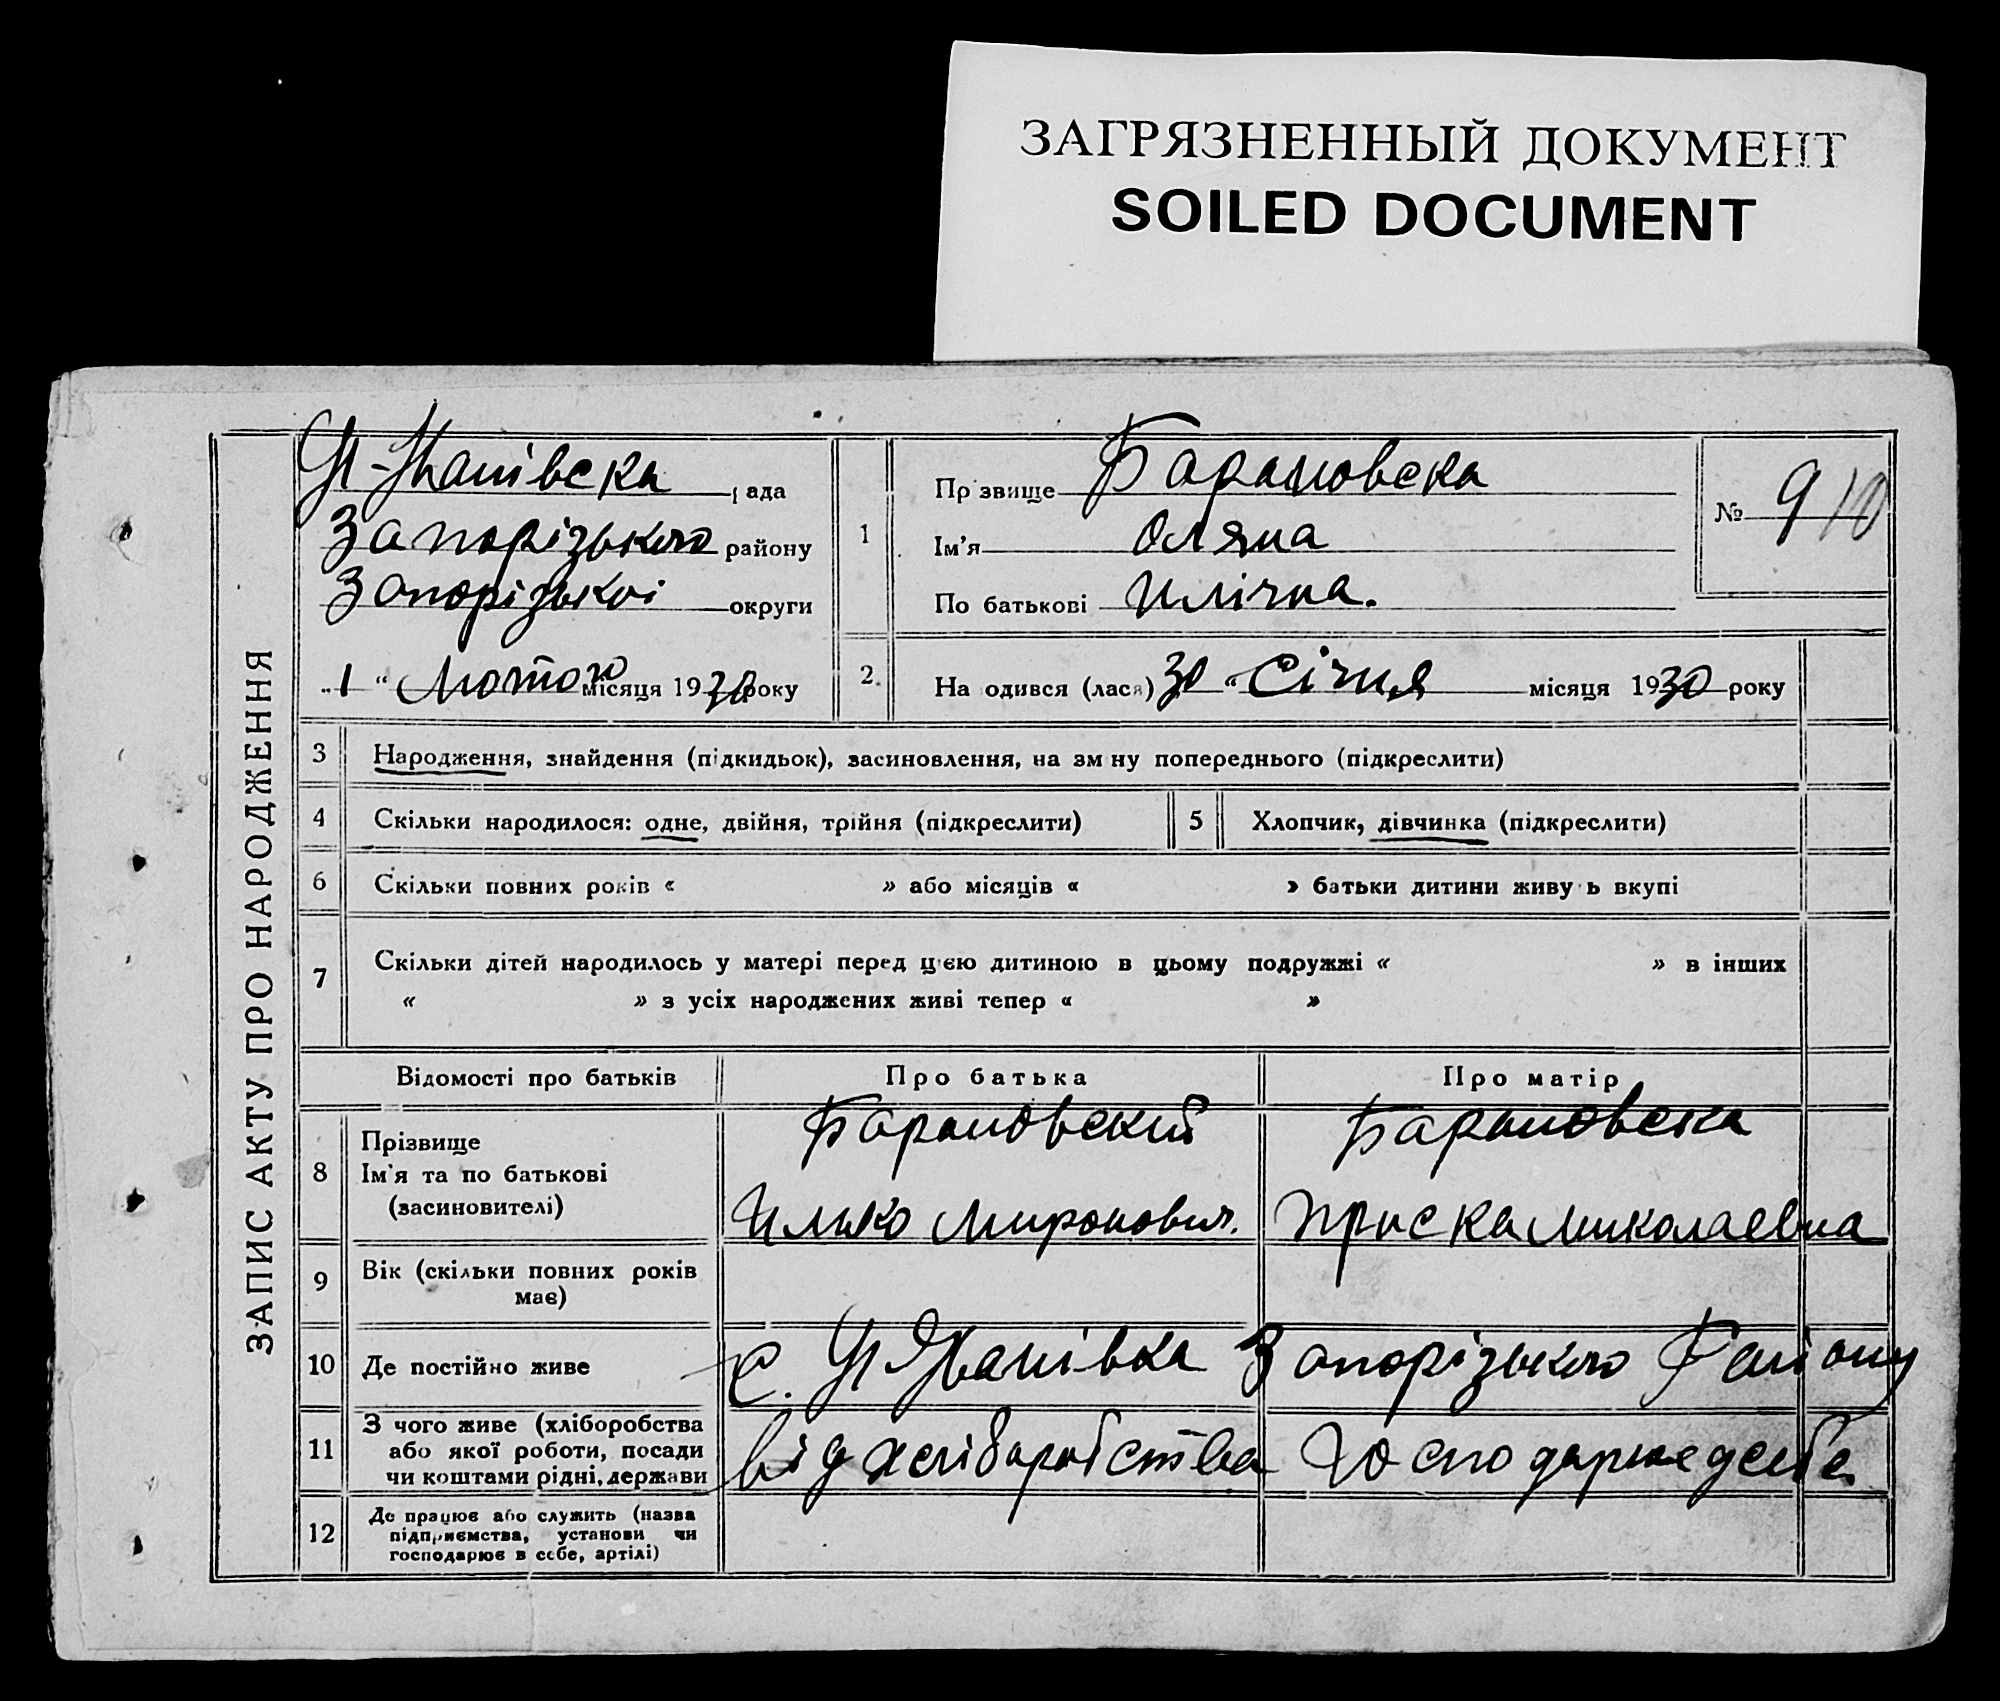 ЗАГРЯЗНЕННЫЙ ДОКУМЕНТ
SOILED DOCUMENT
ЗАПИС АКТУ ПРО НАРОДЖЕННЯ
рада
Запорізького району
Запорізької округи
„1“ Лютого місяця 1930 року
1
Прізвище Барановська
Ім'я Оляна
По батькові Илічна.
№ 9/10
2
Народився (лася) 30 “ Січня місяця 1930 року
3 Народження, знайдення (підкидьок), засиновлення, на зміну попереднього (підкреслити)
4 Скільки народилося: одне, двійня, трійня (підкреслити)
5 Хлопчик, дівчинка (підкреслити)
6 Скільки повних років « » або місяців « » батьки дитини живуть вкупі
7 Скільки дітей народилось у матері перед цією дитиною в цьому подружжі « » в інших
« » з усіх народжених живі тепер « »
Відомості про батьків Про батька Про матір
8 Прізвище
Ім'я та по батькові
(засиновителі)
Барановский
Илько Миронович.
Барановска
Приска Миколаевна
9 Вік (скільки повних років
має)
10 Де постійно живе
с. Запорізького Району
11 З чого живе (хліборобства
або якої роботи, посади
чи коштами рідні, держави
від хліборобства
12 Де працює або служить (назва
підприємства, установи чи
господарює в себе, артілі)